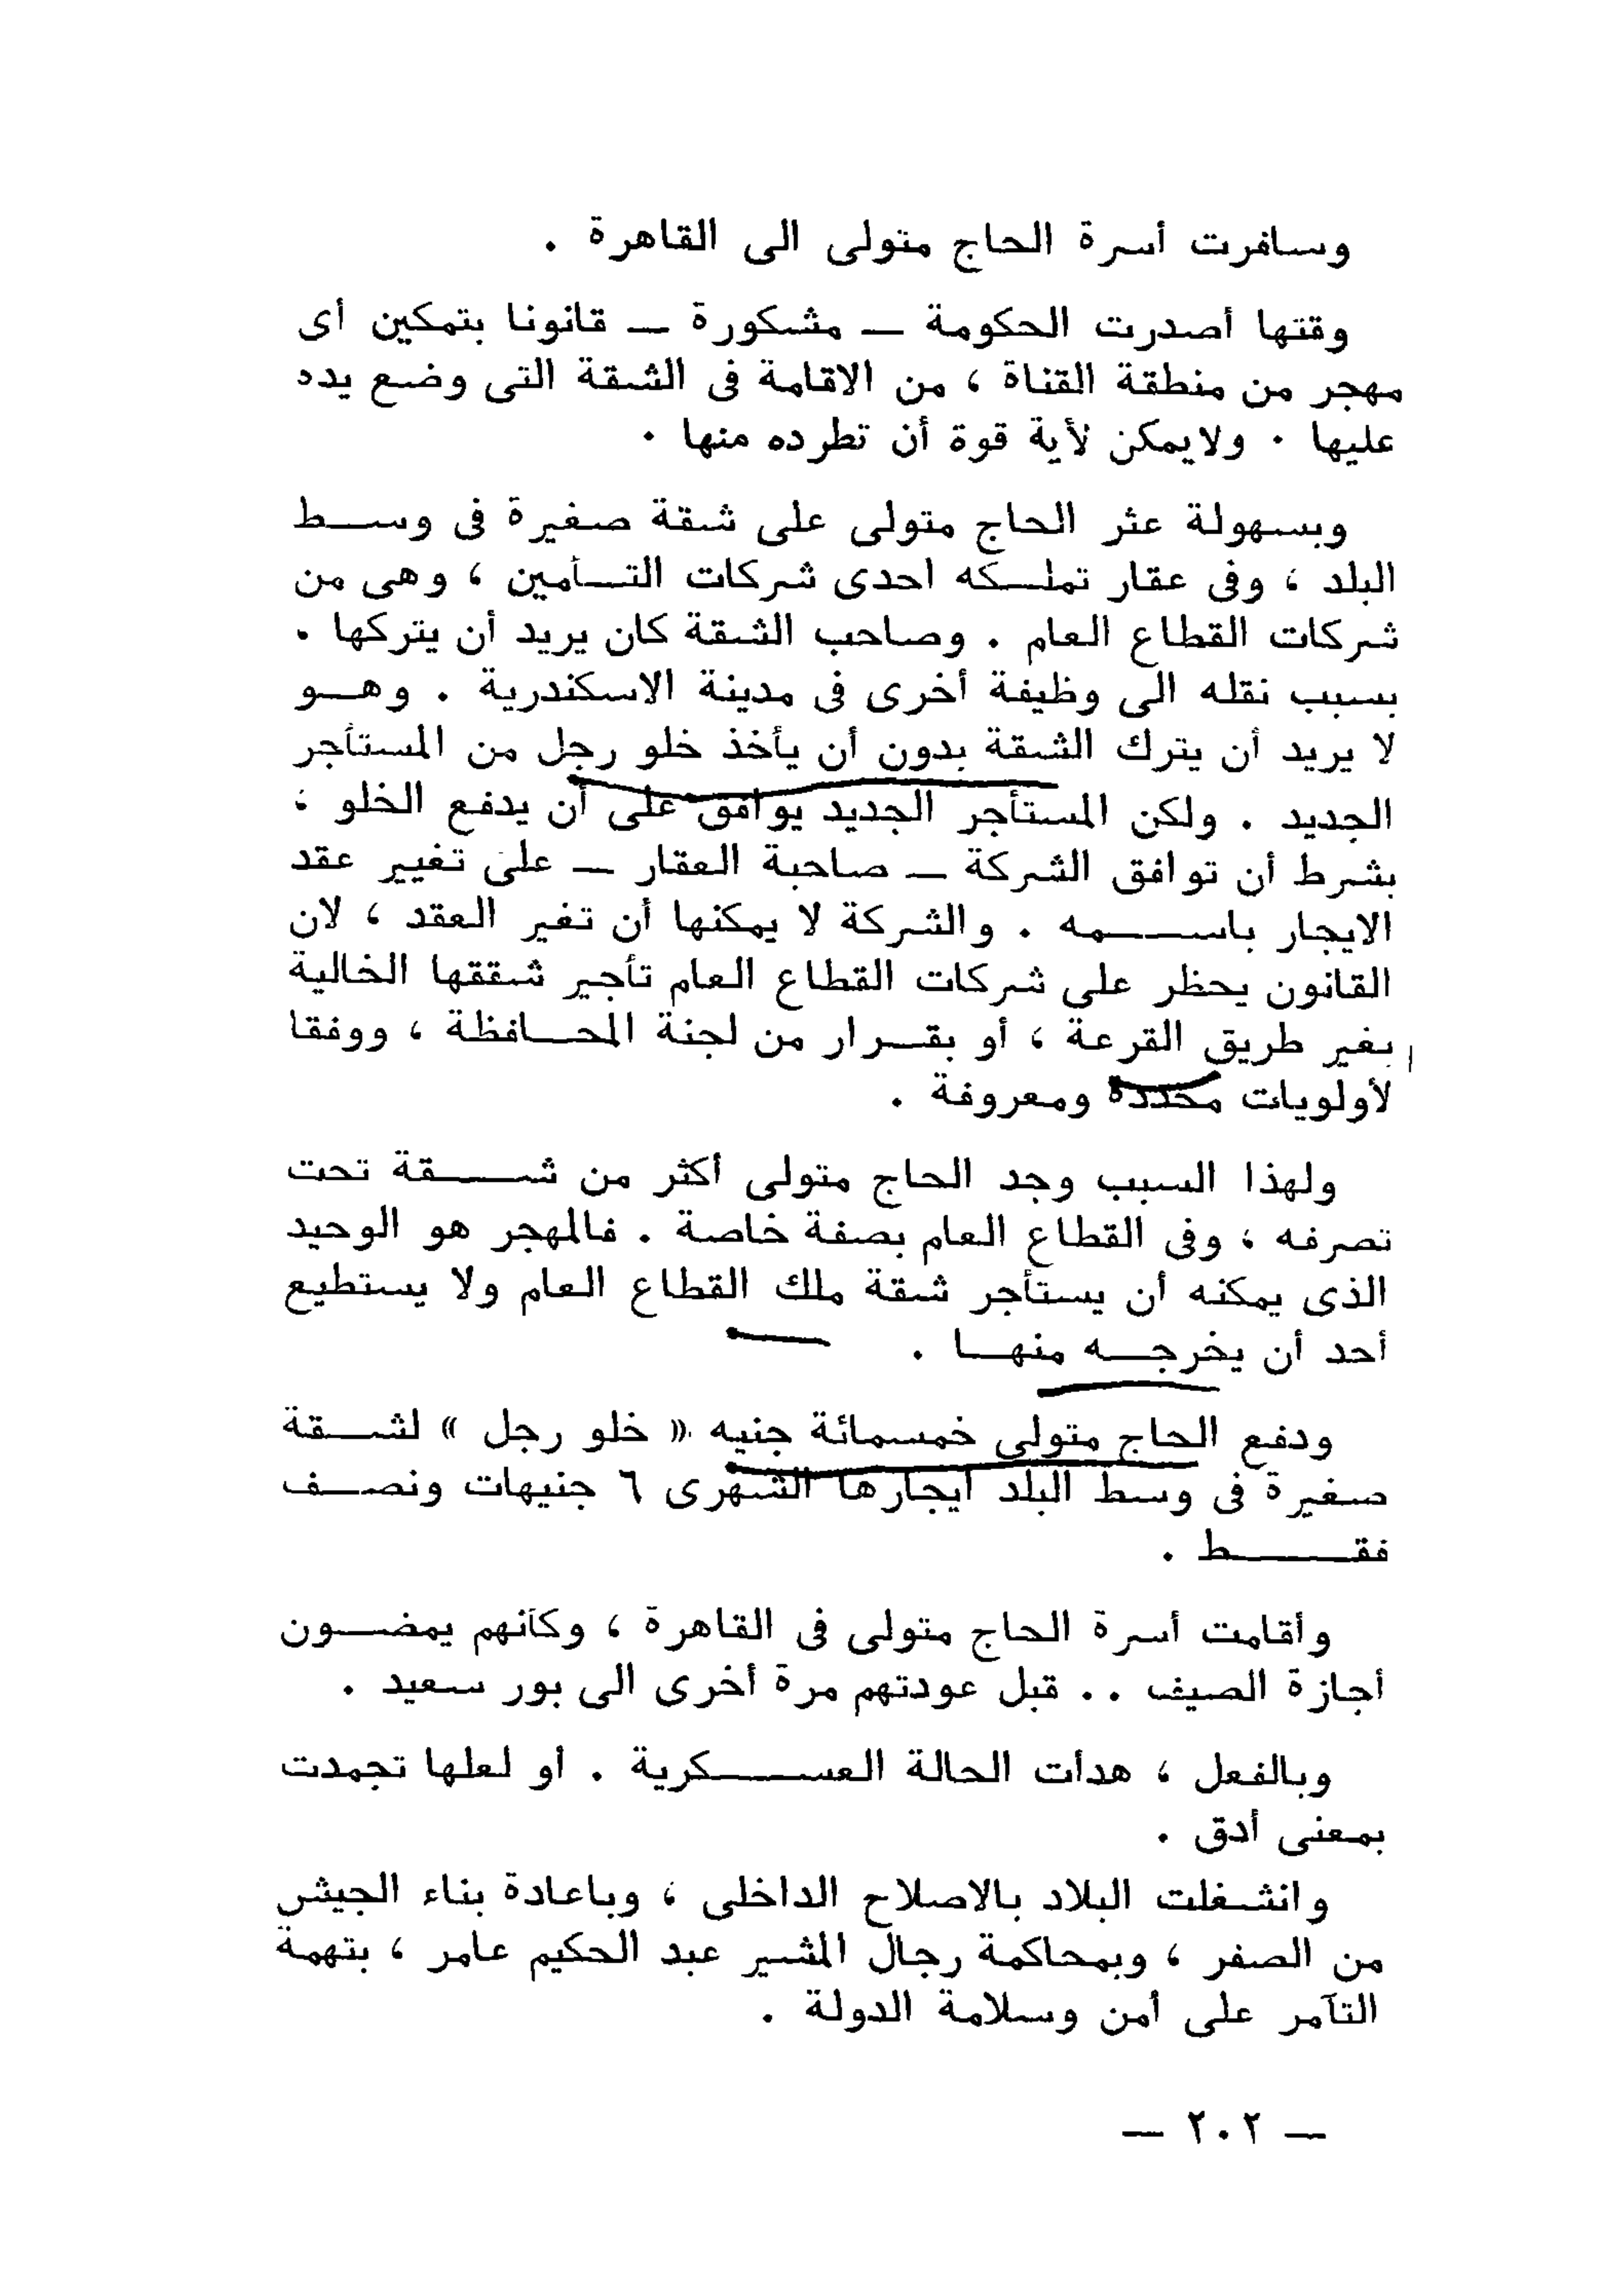 وسافرت أسرة الحاج متولى الى القاهرة .
وقتها أصدرت الحكومة — مشكورة — قانونا بتمكين أى
مهجر من منطقة القناة ، من الاقامة فى الشقة التى وضع يده
عليها . ولايمكن لأية قوة أن تطرده منها .
وبسهولة عثر الحاج متولى على شقة صغيرة فى وسط
البلد ، وفى عقار تملكه احدى شركات التأمين ، وهى من
شركات القطاع العام . وصاحب الشقة كان يريد أن يتركها .
بسبب نقله الى وظيفة أخرى فى مدينة الاسكندرية . وهو
لا يريد أن يترك الشقة بدون أن يأخذ خلو رجل من المستأجر
الجديد . ولكن المستأجر الجديد يوافق على أن يدفع الخلو ،
بشرط أن توافق الشركة — صاحبة العقار — على تغيير عقد
الايجار باسمه . والشركة لا يمكنها أن تغير العقد ، لان
القانون يحظر على شركات القطاع العام تأجير شققها الخالية
بغير طريق القرعة ، أو بقرار من لجنة المحافظة ، ووفقا
لأولويات محددة ومعروفة .
ولهذا السبب وجد الحاج متولى أكثر من شقة تحت
تصرفه ، وفى القطاع العام بصفة خاصة . فالمهجر هو الوحيد
الذى يمكنه أن يستأجر شقة ملك القطاع العام ولا يستطيع
أحد أن يخرجه منها .
ودفع الحاج متولى خمسمائة جنيه « خلو رجل » لشقة
صغيرة فى وسط البلد ايجارها الشهرى ٦ جنيهات ونصف
فقط .
وأقامت أسرة الحاج متولى فى القاهرة ، وكأنهم يمضون
أجازة الصيف .. قبل عودتهم مرة أخرى الى بور سعيد .
وبالفعل ، هدأت الحالة العسكرية . أو لعلها تجمدت
بمعنى أدق .
وانشغلت البلاد بالاصلاح الداخلى ، وباعادة بناء الجيش
من الصفر ، وبمحاكمة رجال المشير عبد الحكيم عامر ، بتهمة
التآمر على أمن وسلامة الدولة .
— ٢٠٢ —